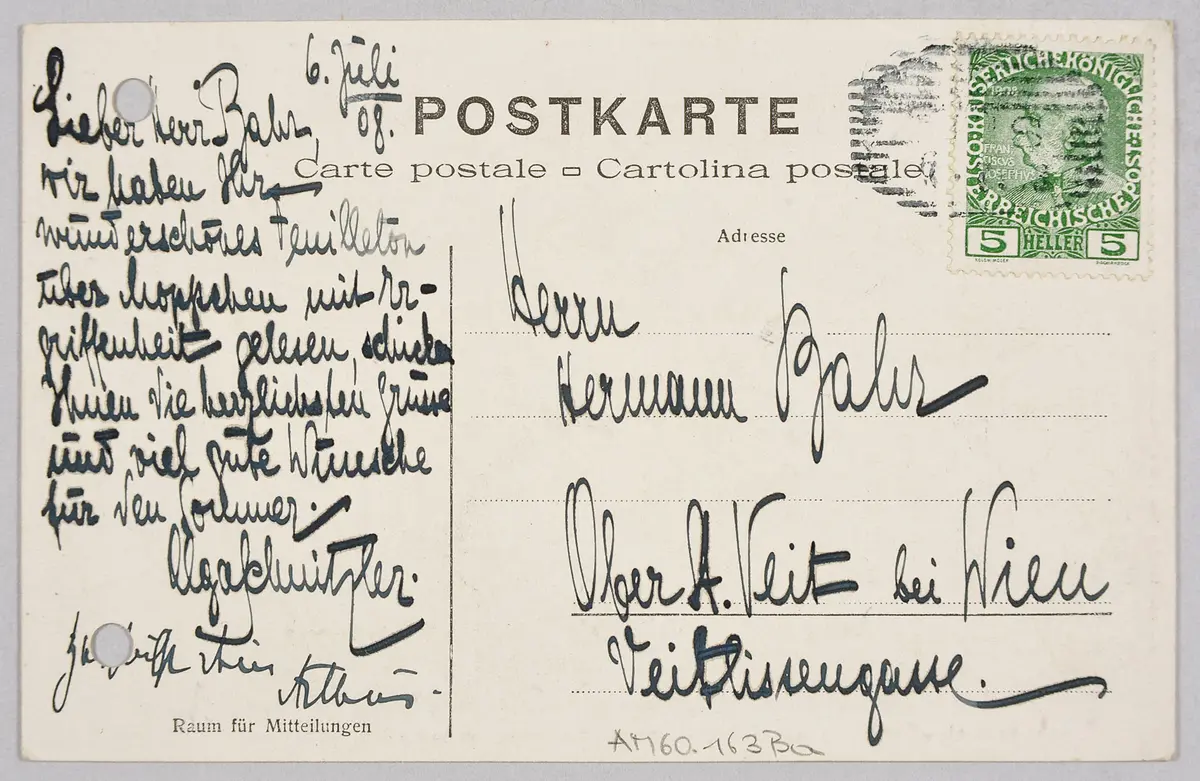 6. Juli
08.
Lieber Herr Bahr,
wir haben Ihr
wunderschönes Feuilleton
über Moppchen mit Er-
griffenheit gelesen, schicken
Ihnen die herzlichsten Grüsse
und viel gute Wünsche
für den Sommer.
Olga Schnitzler.
Herzlichst Dein
Arthur.
Raum für Mitteilungen
POSTKARTE
Carte postale Cartolina postale
Adresse
Herrn
Hermann Bahr
Ober St. Veit bei Wien
Veitlissengasse.
AM60.163Ba
KAISERLICHE KÖNIGLICHE ÖSTERREICHISCHE POST
1908
FRAN
CISCVS
JOSEPHVS
5 HELLER 5